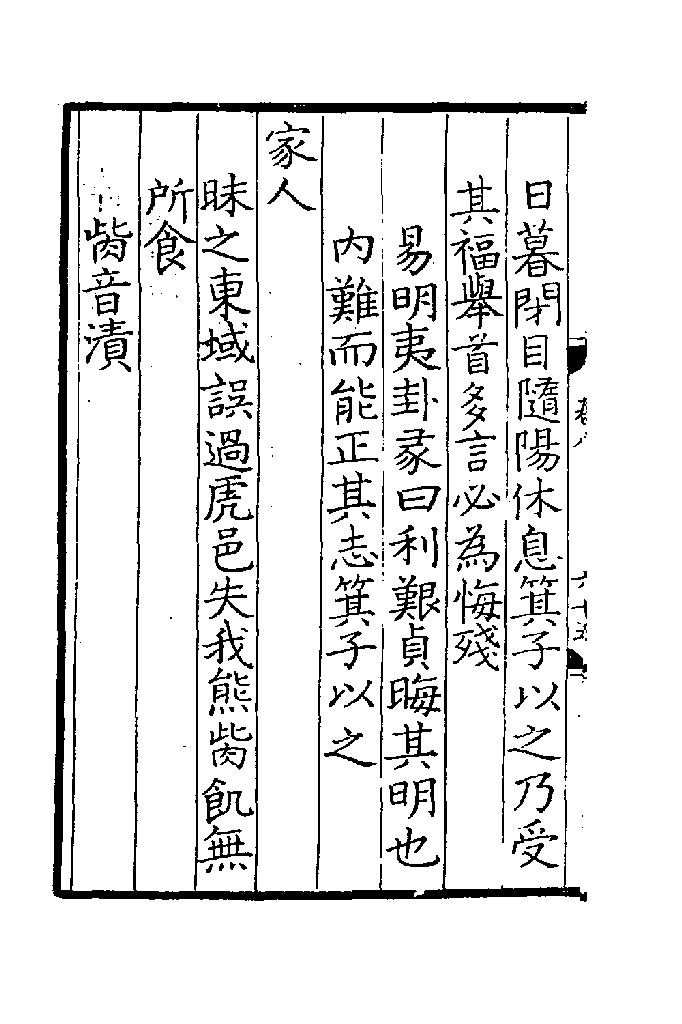 日暮閉目隨陽休息箕子以之乃受
其福舉首多言必為悔殘
易明夷卦彖曰利艱貞晦其明也
内難而能正其志箕子以之
家人
昧之東域誤過虎邑失我熊胔飢無
所食
胔音漬